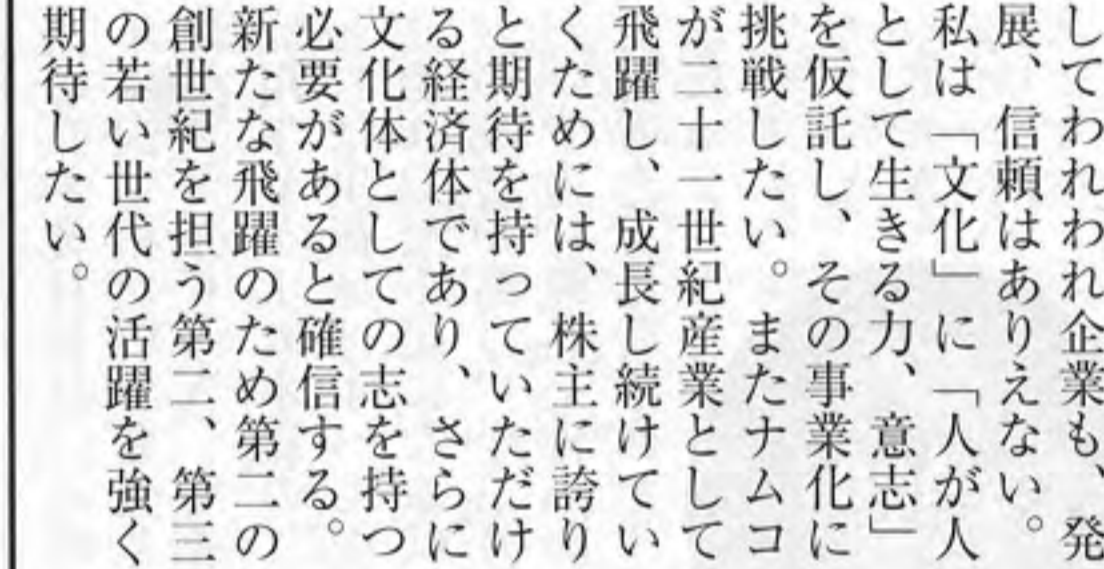 してわれわれ企業も、発
展、信頼はありえない。
私は「文化」に「人が人
として生きる力、意志」
を仮託し、その事業化に
挑戦したい。またナムコ
が二十一世紀産業として
飛躍し、成長し続けてい
くためには、株主に誇り
と期待を持っていただけ
る経済体であり、さらに
文化体としての志を持つ
必要があると確信する。
新たな飛躍のため第二の
創世紀を担う第二、第三
の若い世代の活躍を強く
期待したい。